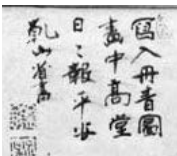 寫入丹青圖
畫中高堂
日々報平安
乾山省畫